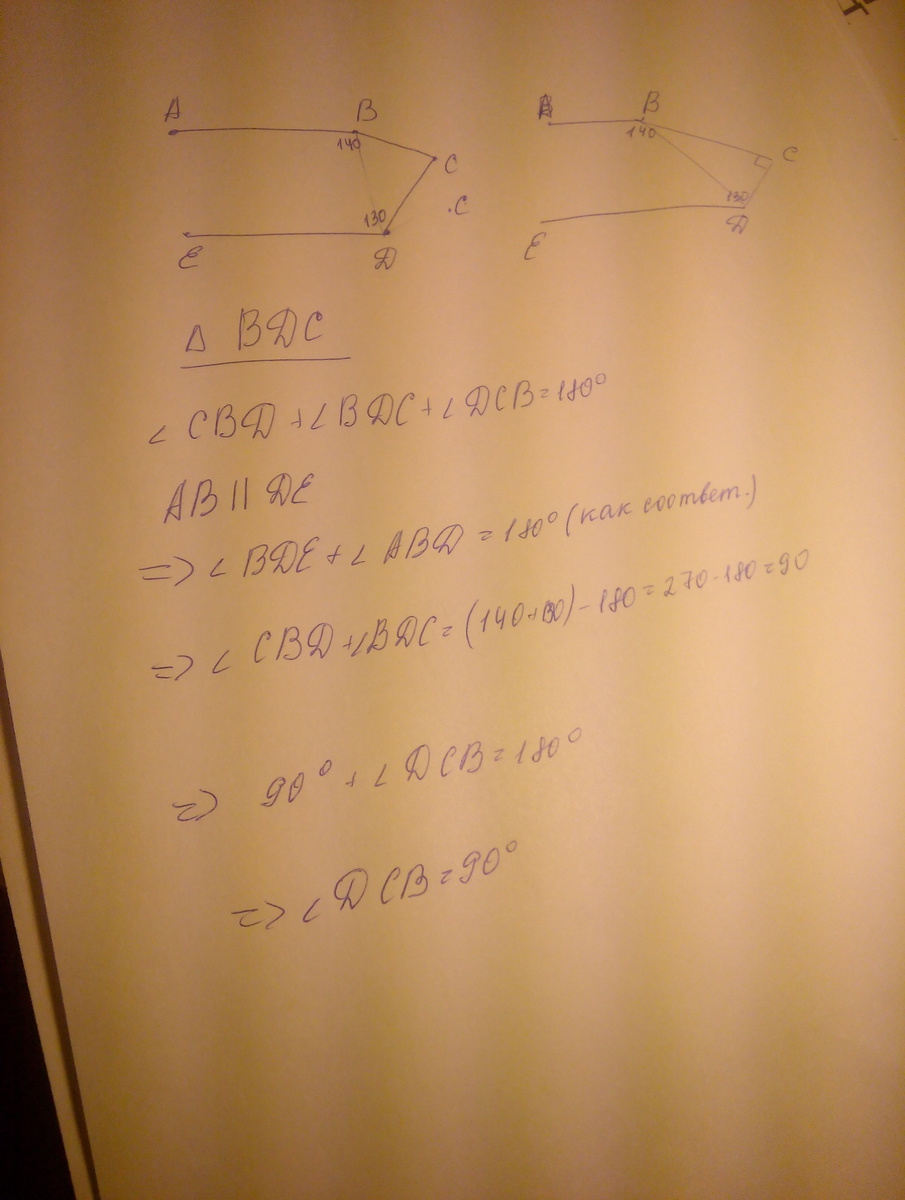 A B C
140
130
.C
E D
A B C
140
130
E D
Δ BDC
∠ CBD + ∠ BDC + ∠ DCB = 180°
AB || DE
=> ∠ BDE + ∠ ABD = 180° (как соответ.)
=> ∠ CBD + ∠BDC = (140+130) - 180 = 270 - 180 = 90
=> 90° + ∠ DCB = 180°
=> ∠ DCB = 90°